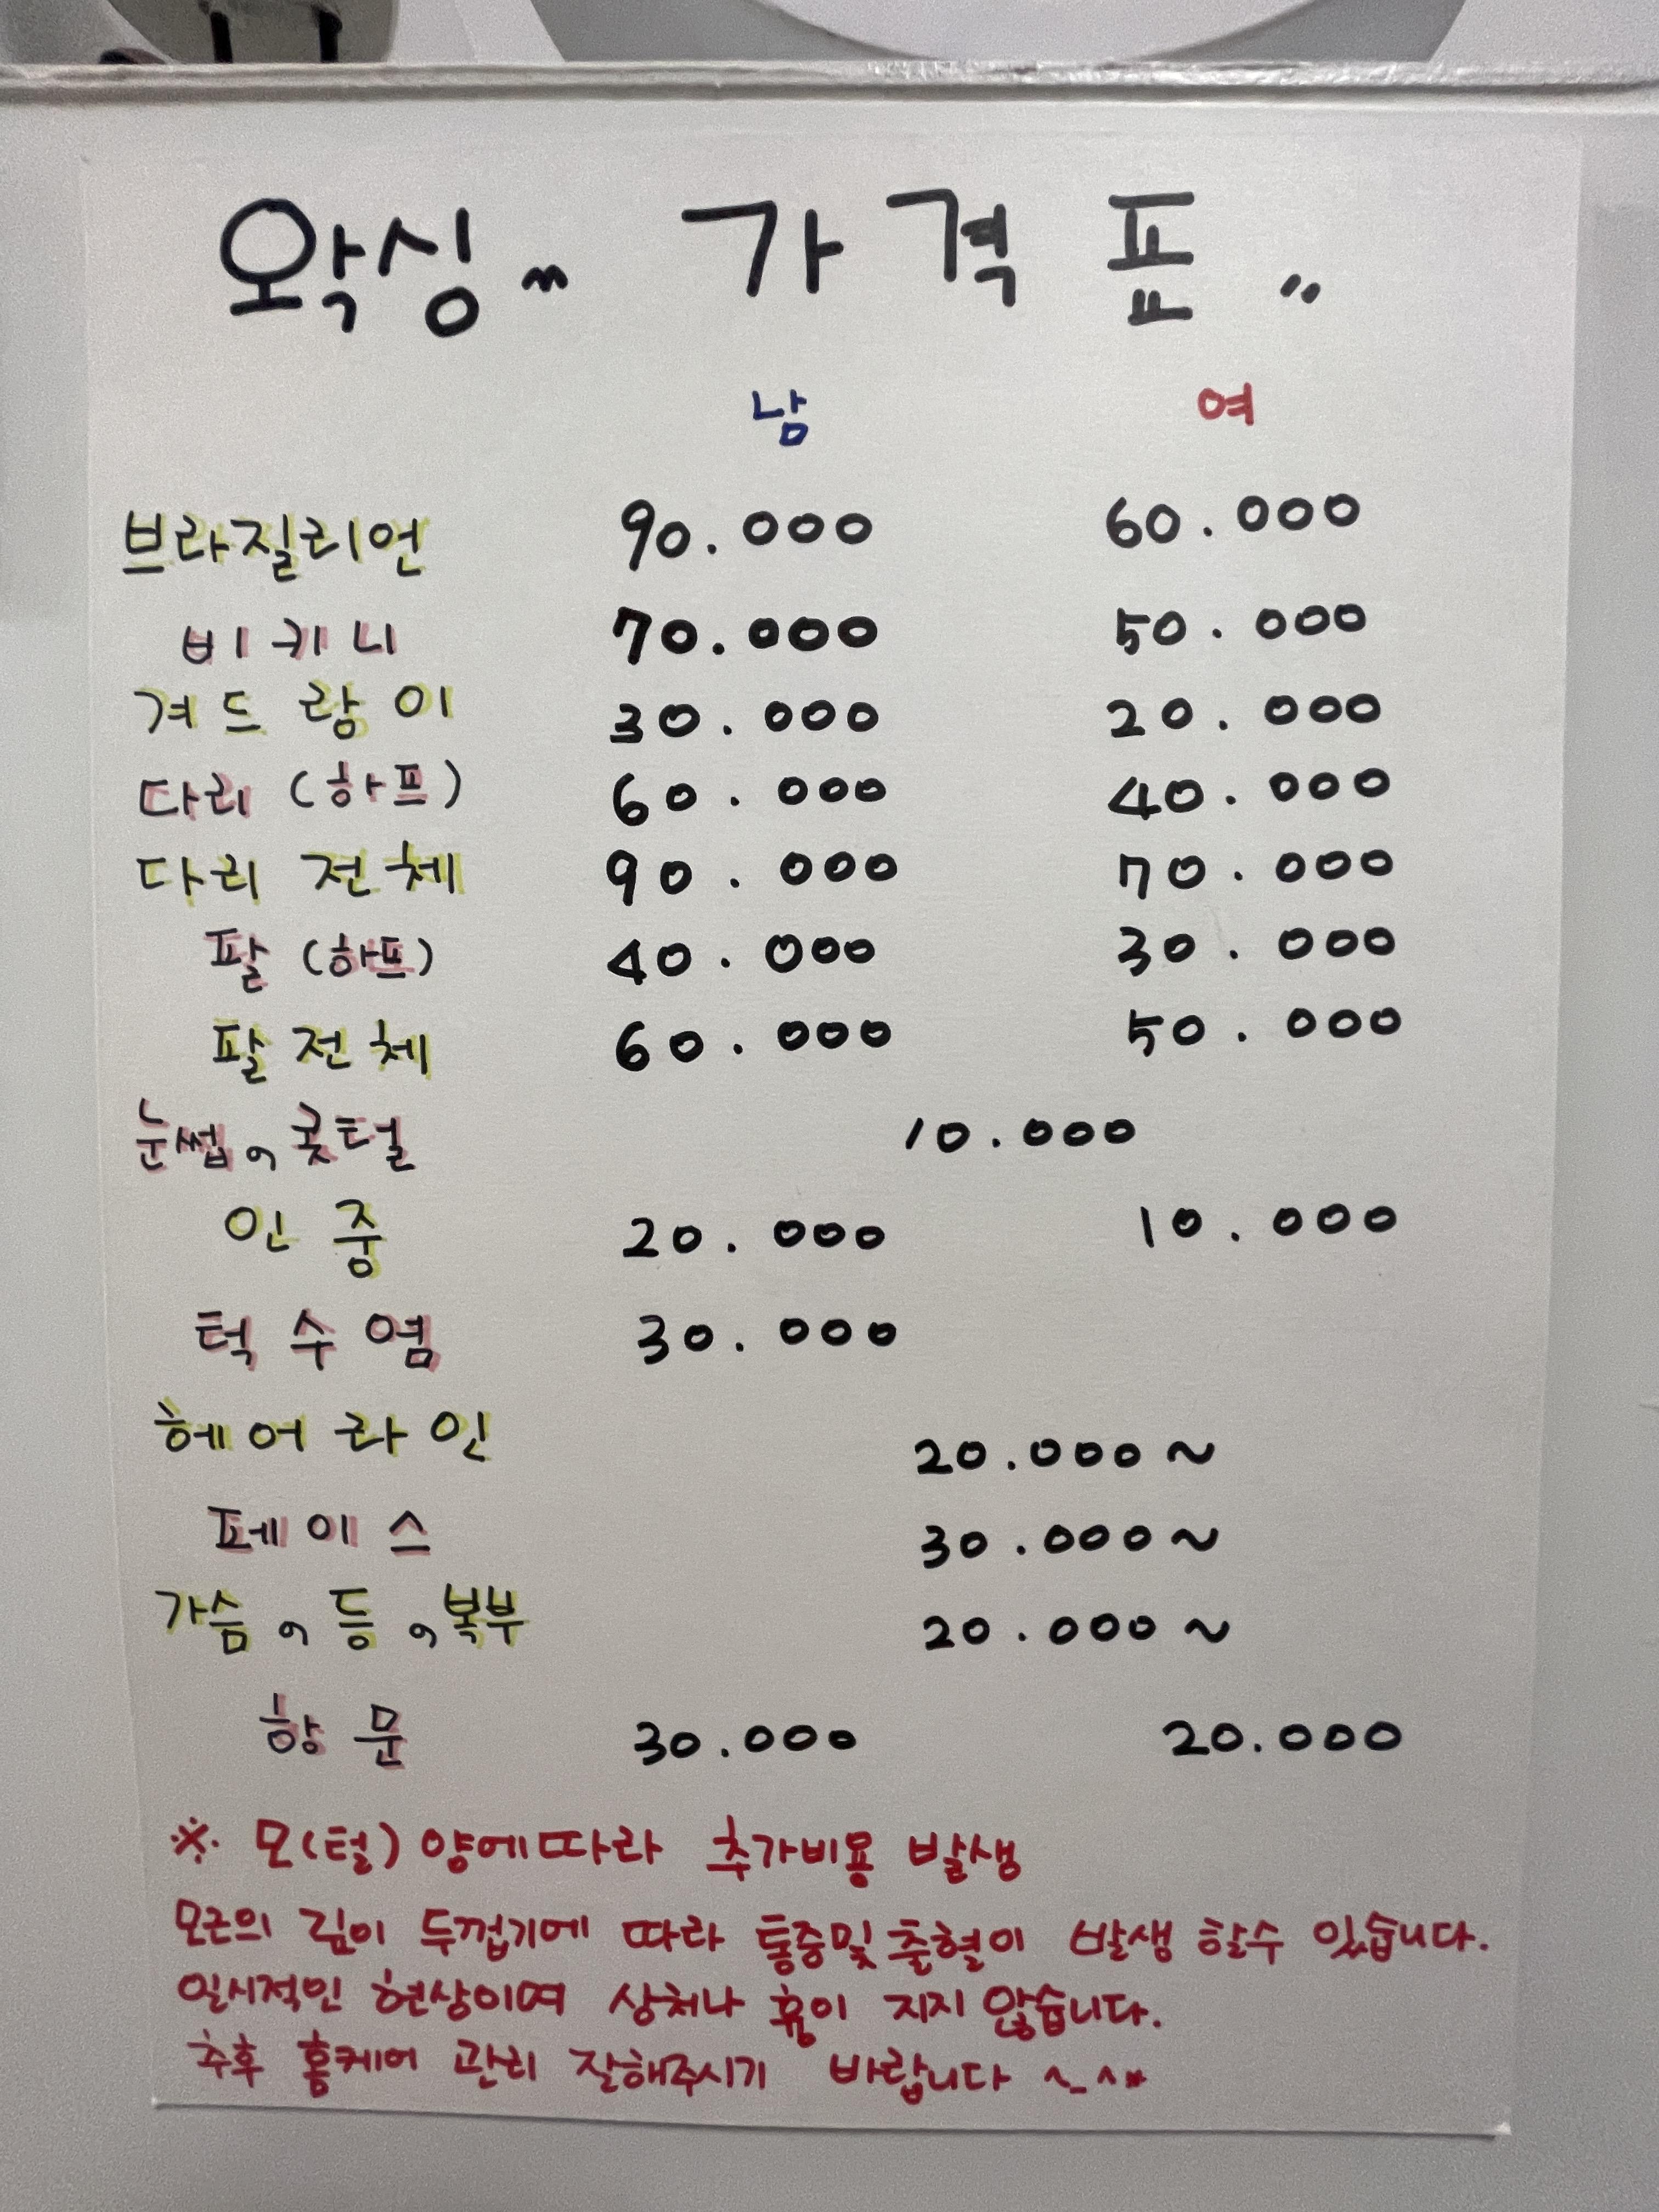 왁싱 〃 가격표 〃
남 여
브라질리언 90.000 60.000
비키니 70.000 50.000
겨드랑이 30.000 20.000
다리 (하프) 60.000 40.000
다리 전체 90.000 70.000
팔 (하프) 40.000 30.000
팔 전체 60.000 50.000
눈썹, 콧털 10.000
인중 20.000 10.000
턱수염 30.000
헤어라인 20.000~
페이스 30.000~
가슴, 등, 복부 20.000~
항문 30.000 20.000
※ 모(털) 양에따라 추가비용 발생
모근의 깊이 두껍기에 따라 통증및 출혈이 발생 할수 있습니다.
일시적인 현상이며 상처나 흉이 지지 않습니다.
추후 홈케어 관리 잘해주시기 바랍니다 ^_^*